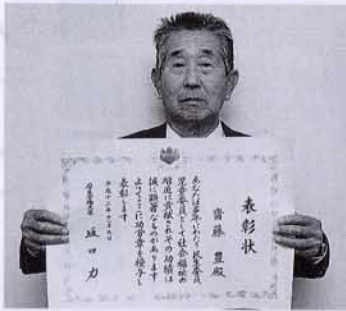 表彰状
齋藤 豊殿
あなたは多年にわたり民生委員
児童委員として社会福祉の
増進に貢献されその功績は
誠に顕著なものがあります
よってここに功労章を授与し
表彰します
平成十三年十一月
厚生労働大臣 坂口 力